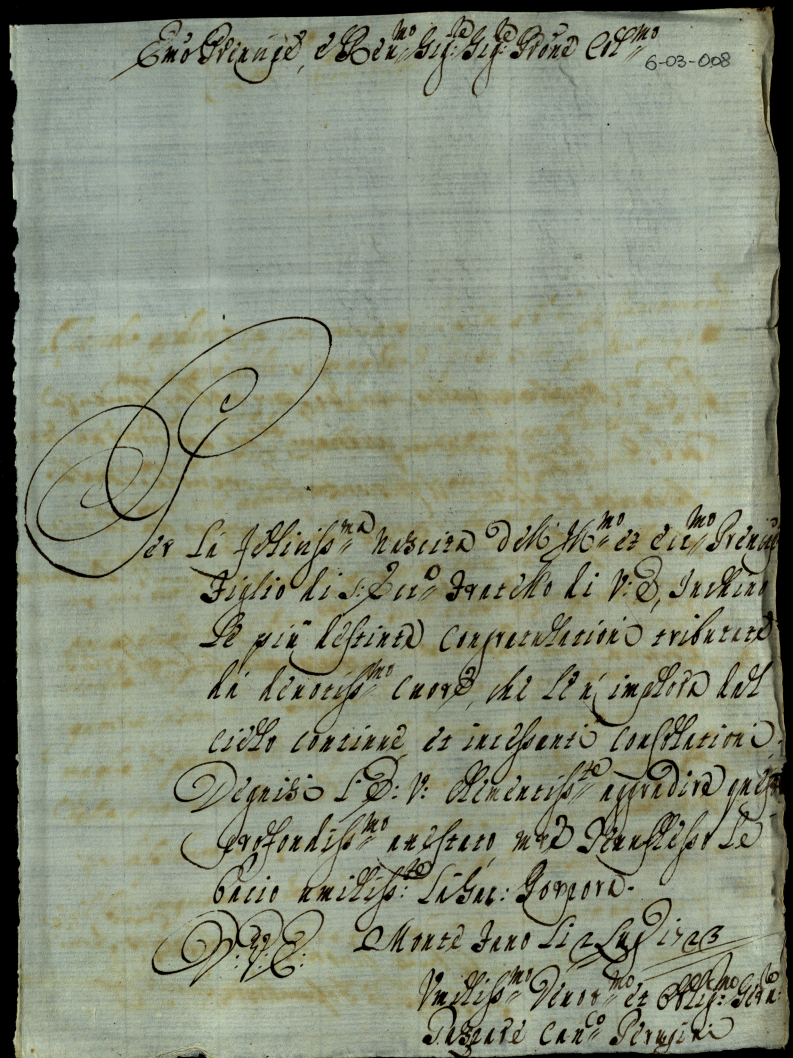 Emo Principe, e Rev.mo Sig.re Sig.re Prone Col.mo
6-03-008
Per La feliciss.ma nascita dell' Ill.mo et ecc.mo Principe
Figlio di S: Ecc.a Fratello di V: E, Inchino
Le più destinte Congratulationi tributate
da devotiss.mo Cuore, che Le n' implora dal
cielo continue, et incessanti Consolationi.
Degnisi L' E: V: Clementiss.te aggradire questo
profondiss.mo attestato mre Genuflesso Le
bacio umiliss.te La Sac: Porpora.
D: V: E: Monte Fano Li 2 Lug 1723
Umiliss.mo Devot.mo et Oblig.mo Ser.re
Can.co